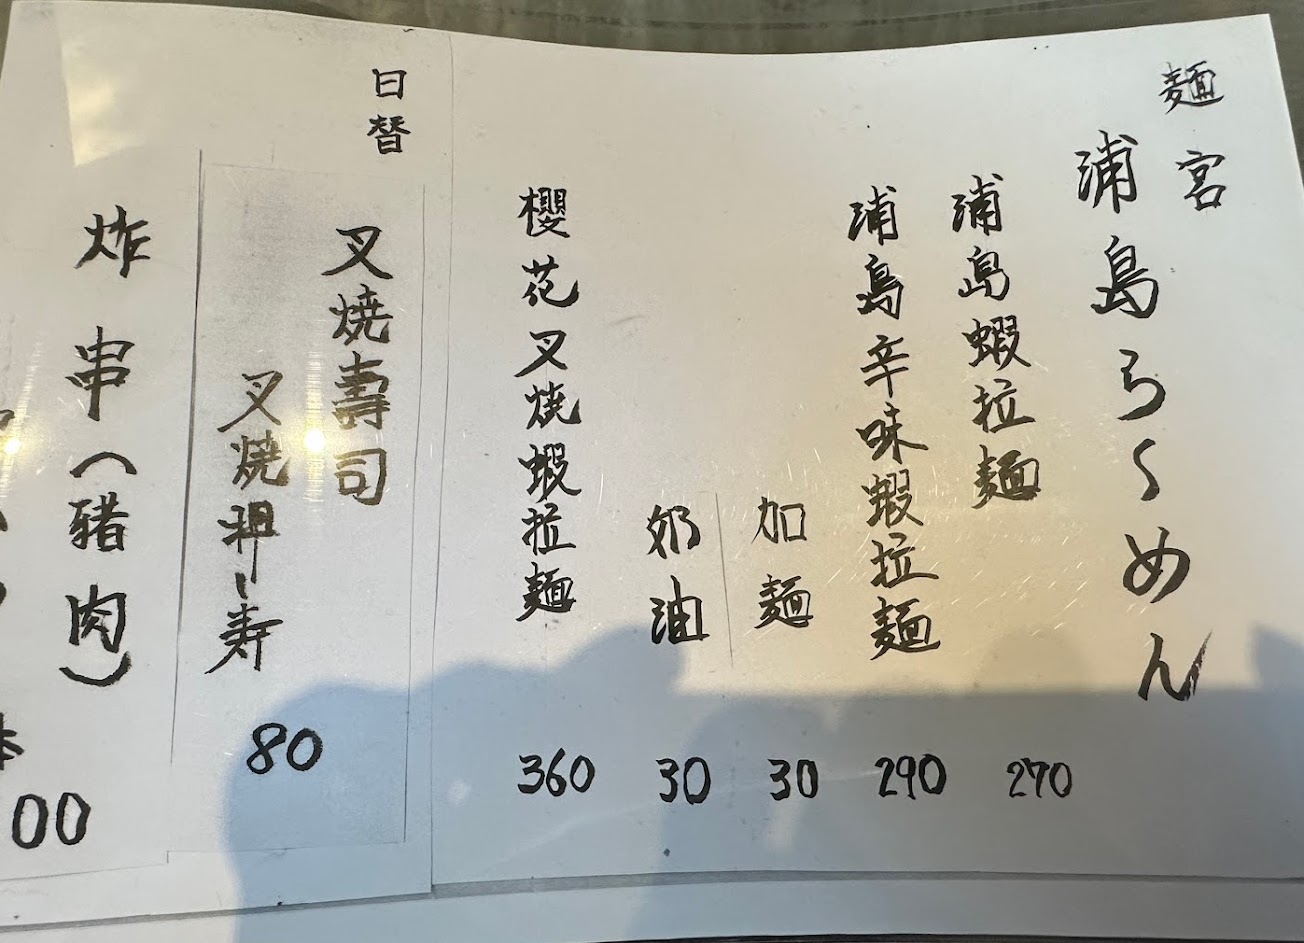 麵宮
浦島らーめん
浦島蝦拉麵 270
浦島辛味蝦拉麵 290
加麵 30
奶油 30
櫻花叉燒蝦拉麵 360
日替
叉燒壽司
叉焼押し寿 80
炸串(豬肉)
00